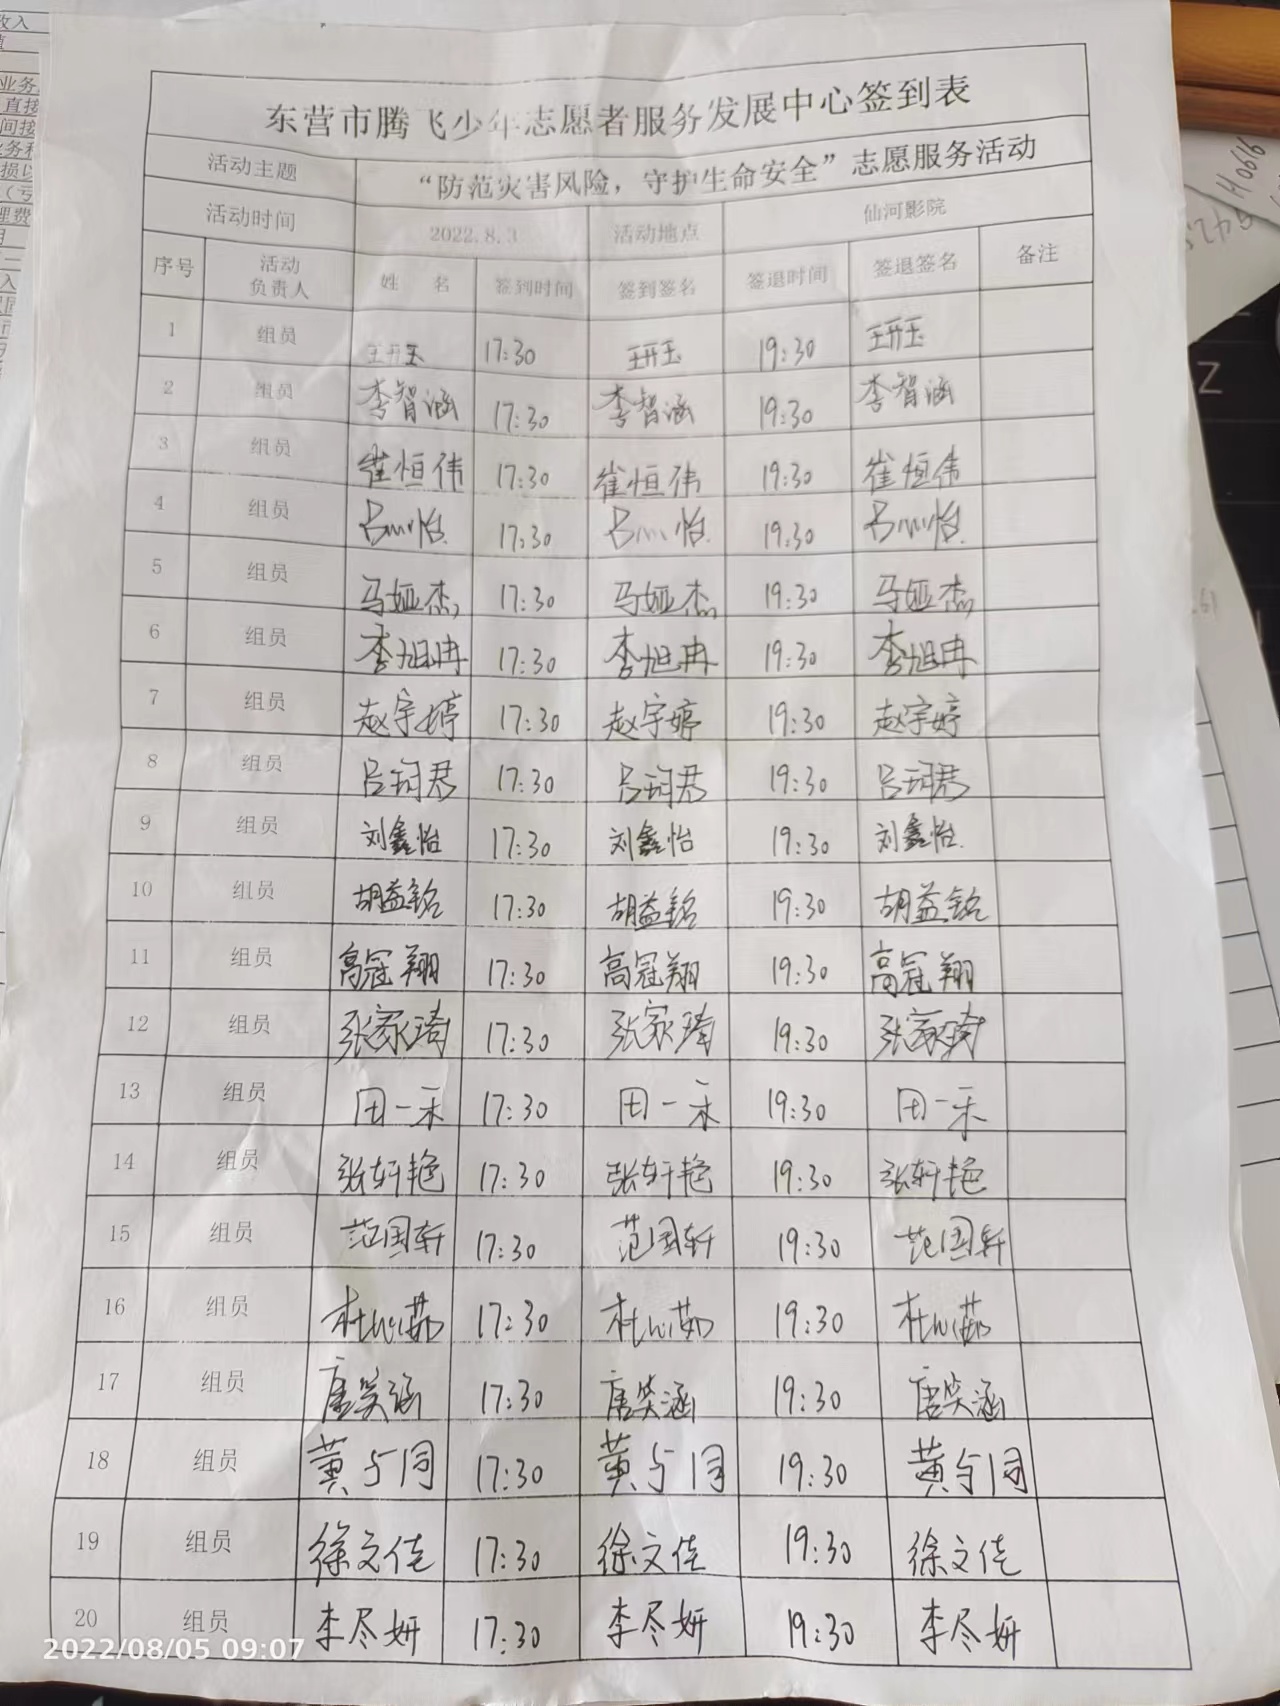 东营市腾飞少年志愿者服务发展中心签到表
活动主题 “防范灾害风险，守护生命安全”志愿服务活动
活动时间 2022.8.3 活动地点 仙河影院
序号 活动负责人 姓 名 签到时间 签到签名 签退时间 签退签名 备注
1 组员 王研玉 17:30 王研玉 19:30 王研玉
2 组员 李智涵 17:30 李智涵 19:30 李智涵
3 组员 崔恒伟 17:30 崔恒伟 19:30 崔恒伟
4 组员 吕心怡 17:30 吕心怡 19:30 吕心怡
5 组员 马娅杰 17:30 马娅杰 19:30 马娅杰
6 组员 李旭冉 17:30 李旭冉 19:30 李旭冉
7 组员 赵宇婷 17:30 赵宇婷 19:30 赵宇婷
8 组员 吕珂君 17:30 吕珂君 19:30 吕珂君
9 组员 刘鑫怡 17:30 刘鑫怡 19:30 刘鑫怡
10 组员 胡益铭 17:30 胡益铭 19:30 胡益铭
11 组员 高冠翔 17:30 高冠翔 19:30 高冠翔
12 组员 张家琦 17:30 张家琦 19:30 张家琦
13 组员 田一禾 17:30 田一禾 19:30 田一禾
14 组员 张轩艳 17:30 张轩艳 19:30 张轩艳
15 组员 范国轩 17:30 范国轩 19:30 范国轩
16 组员 杜心茹 17:30 杜心茹 19:30 杜心茹
17 组员 唐笑涵 17:30 唐笑涵 19:30 唐笑涵
18 组员 黄与同 17:30 黄与同 19:30 黄与同
19 组员 徐文佳 17:30 徐文佳 19:30 徐文佳
20 组员 李尽妍 17:30 李尽妍 19:30 李尽妍
2022/08/05 09:07